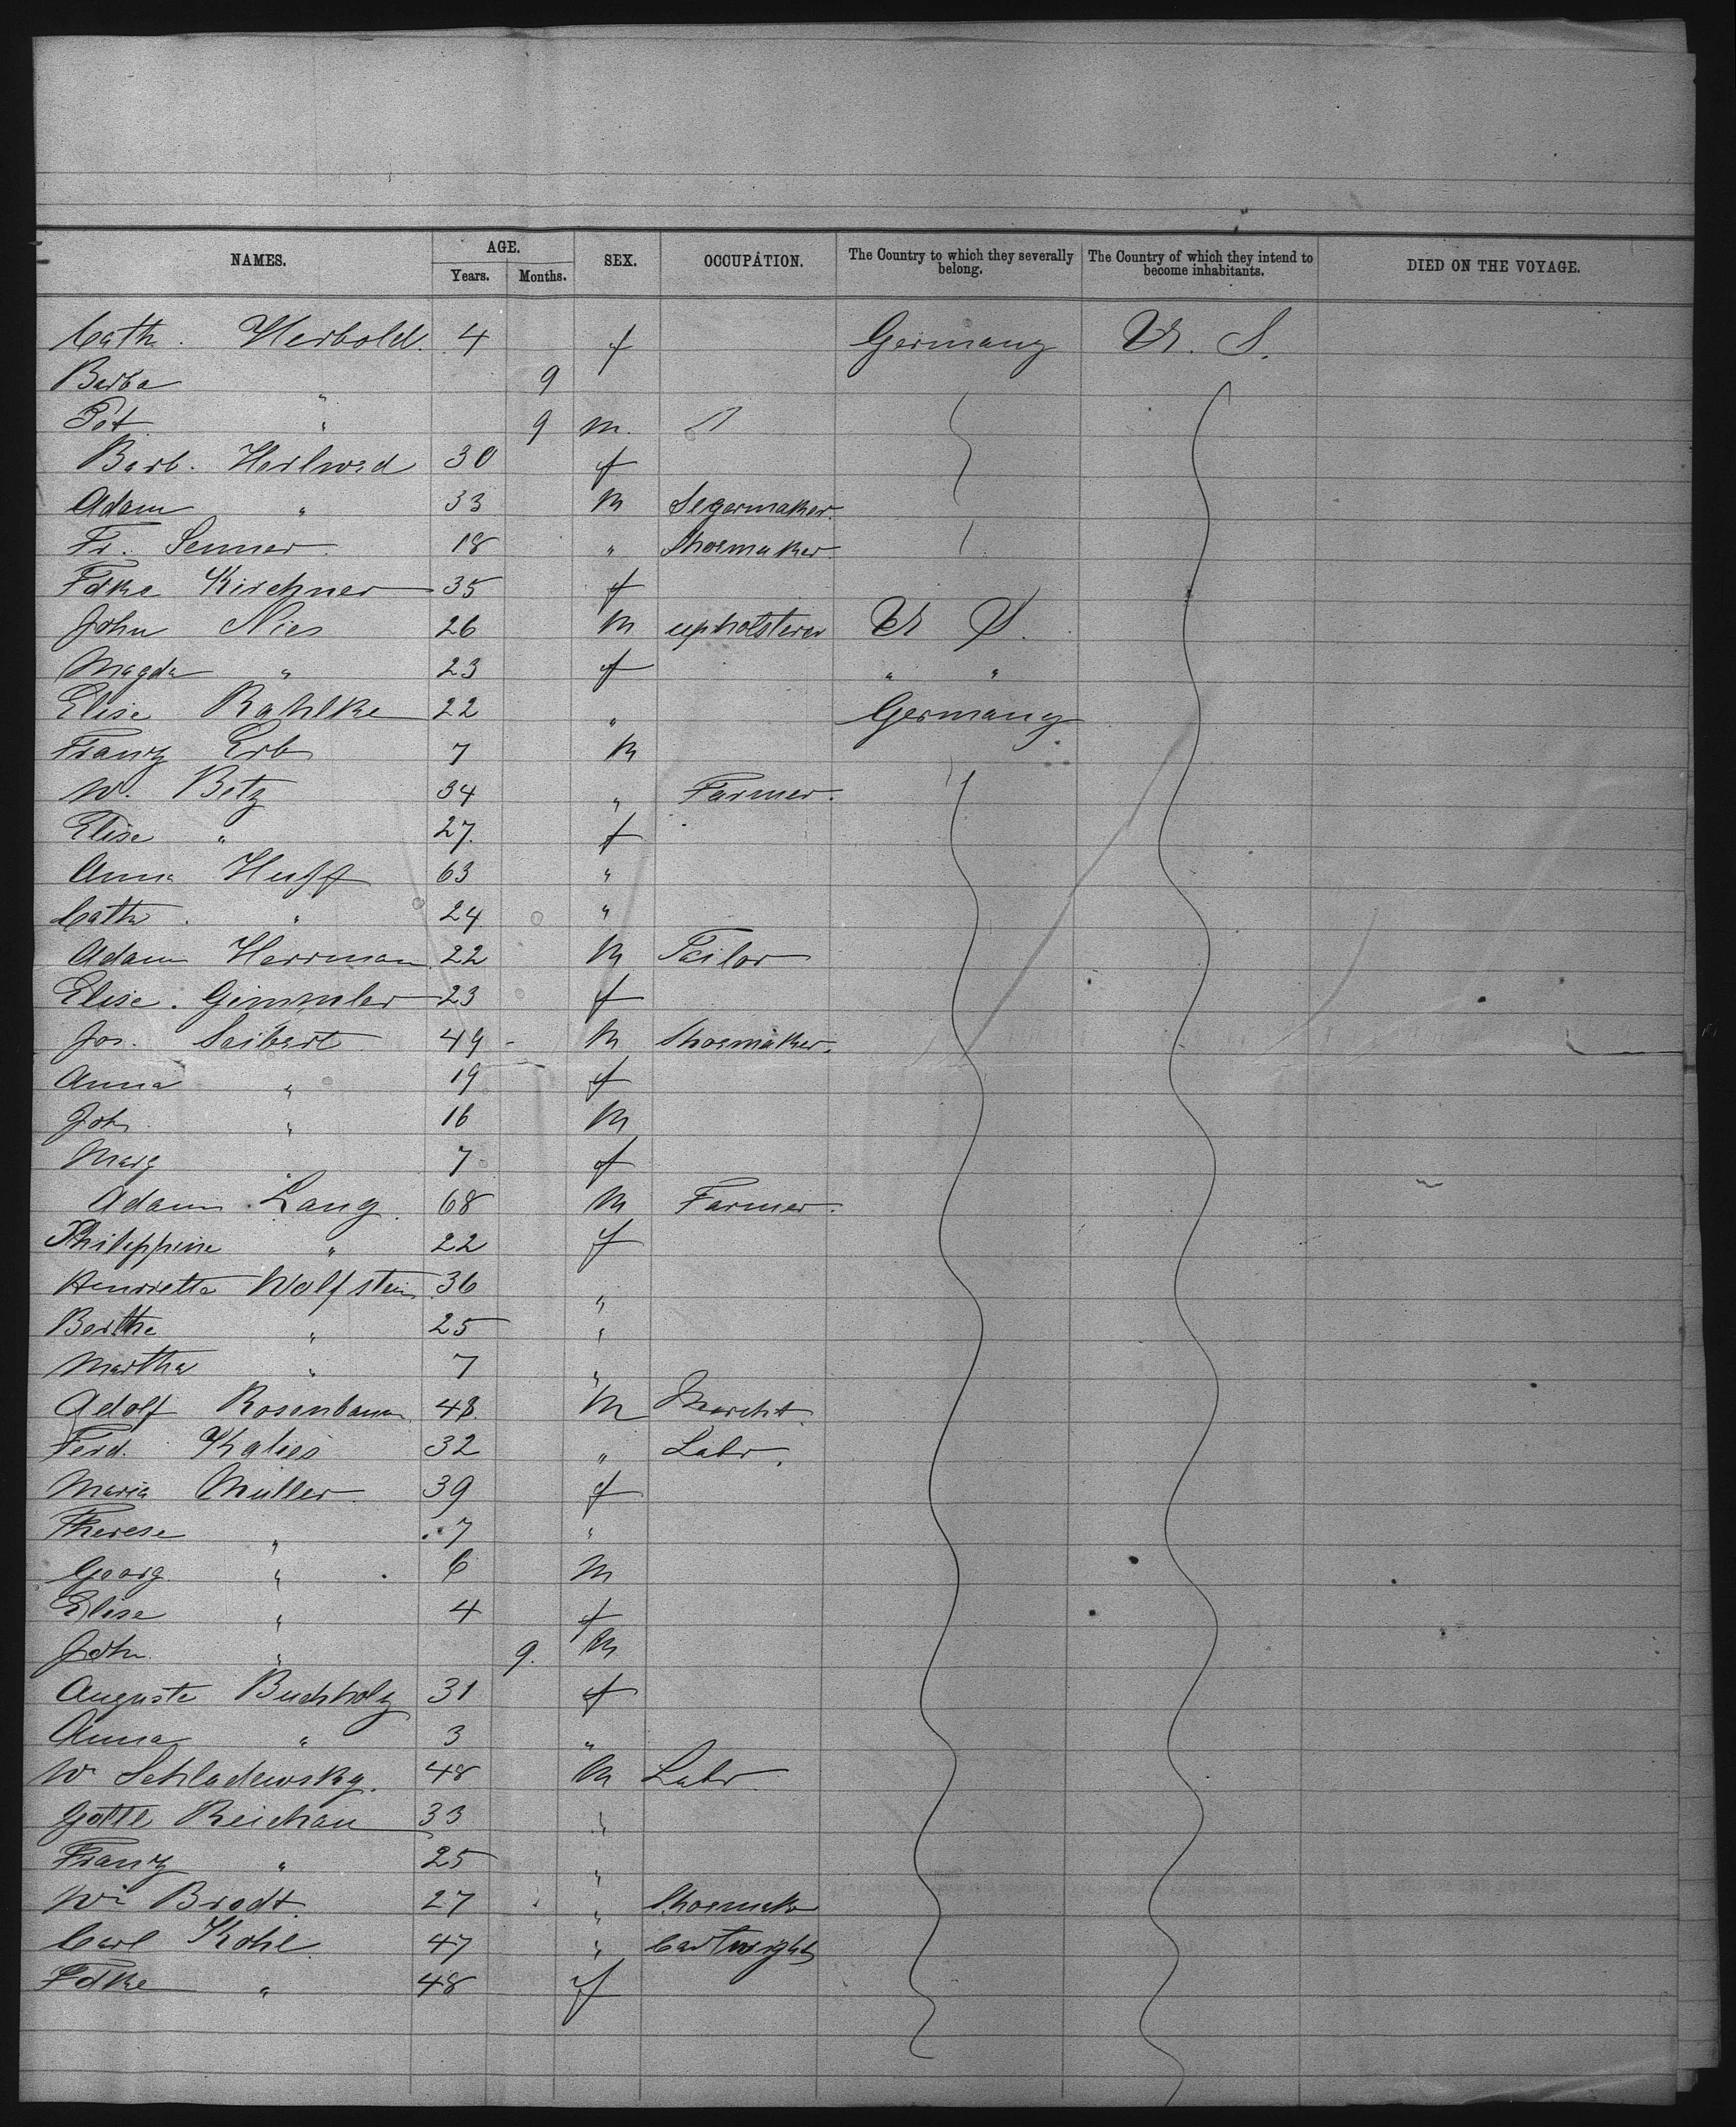 NAMES. AGE. Years. Months. SEX. OCCUPATION. The Country to which they severally belong. The Country of which they intend to become inhabitants. DIED ON THE VOYAGE.
Cath. Herbold. 4 f Germany U. S.
Barba " 9
Pet. " 9 m.
Barb. 30 f
Adam " 33 m Segarmaker.
Fr. Senner. 18 " Shoemaker.
Fdke Kirchner 35 f
John Nies 26 m upholsterer U S.
Magda " 23 f " "
Elise Rahlke 22 " Germany
Franz Erb 7 m
W. Betz 34 " Farmer.
Elise " 27. f
Anna Huff 63 "
Cath. " 24 "
Adam Herrman 22 m Tailor
Elise. Gimmler 23 f
Jos. Seibert 49 - m Shoemaker.
Anna " 19 f
Joh. " 16 m
Marg " 7 f
Adam Lang. 68 m Farmer.
Philippine " 22 f
Henriette Wolfstein 36 "
Berthe " 25 "
Martha " 7 "
Adolf Rosenbaum 48. m Marcht.
Ferd. Kalies 32 " Labr.
Maria Muller. 39 f
Therese " 7 "
Georg " 6 m
Elise " 4 f
Joh. " 9. m
Auguste Buchholz 31 f
Anna " 3 "
Wm Schladewsky. 48 m Labr.
Gottl Reichau 33 "
Franz " 25 "
Wm Brodt. 27 " Shoemakr
Carl Kohl. 47 " Cartwright
Fdke " 48 f